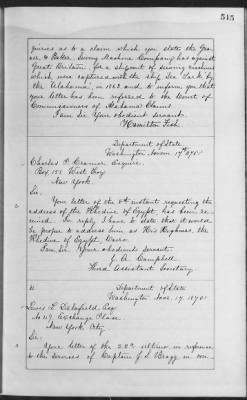 515
quiries as to a claim which you state the Gro-
ver & Baker Sewing Machine Company has against
Great Britain for a shipment of sewing machines
which were captured with the ship "Sea Lark" by
the "Alabama," in 1863, and to inform you that
your letter has been referred to the Court of
Commissioners of Alabama Claims.
I am Sir Your obedient servant.
Hamilton Fish
Department of State
Washington
Charles P. Cramer Esquire,
Box 155 West Troy
New York.
Sir.
Your letter of the instant requesting the
address of the Khedive of Egypt, has been re-
ceived. In reply I have to state that it would
be proper to address him as His Highness, the
Khedive of Egypt, Cairo.
I am Sir Your obedient servant
J. A. Campbell
Third Assistant Secretary
Department of State
Washington Nov. 17. 187
Lewis L. Delafield, Esq.
No 49 Exchange Place
New York City
Sir.
Your letter of the 22d ultimo, in reference
to the services of Captain J. S. Bragg in con-